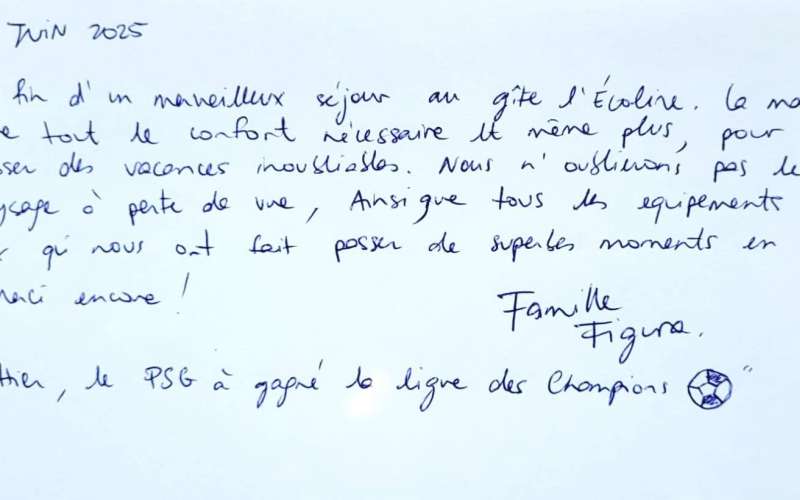 Juin 2025
fin d'un merveilleux séjour au gîte l'Écoline. La ma
e tout le confort nécessaire et même plus, pour
sser des vacances inoubliables. Nous n'oublierons pas le
ysage à perte de vue, Ainsi que tous les equipements
qui nous ont fait passer de superbes moments en
merci encore !
Famille
Figura.
Hier, le PSG à gagné la ligue des Champions ⚽"